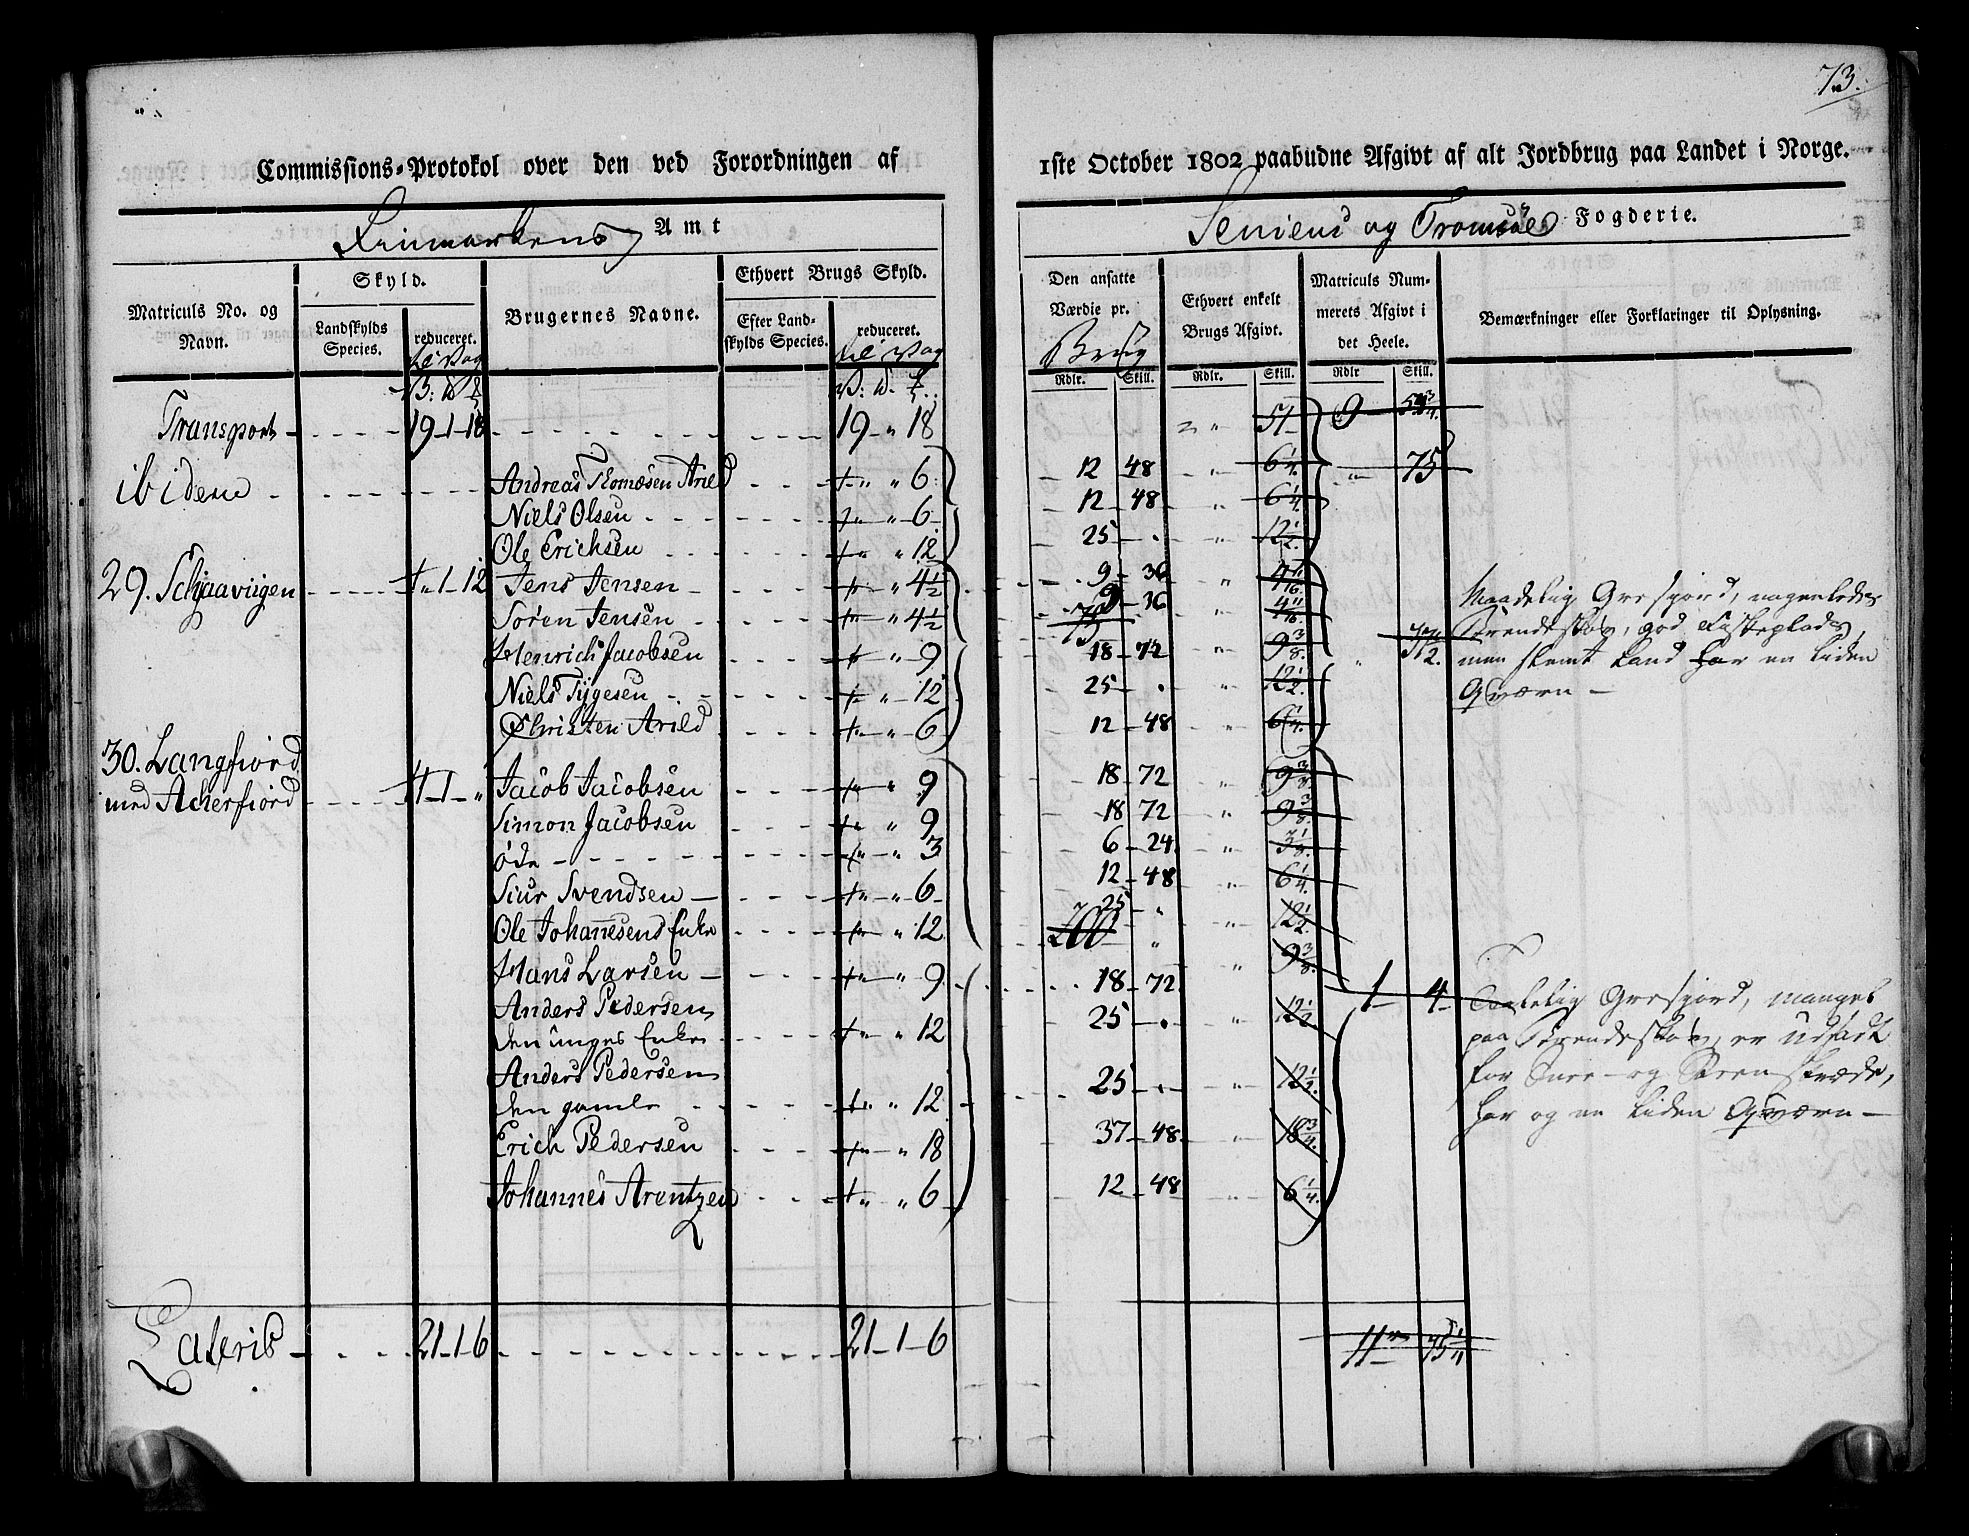 73.
Commissions-Protokol over den ved Forordningen af 1ste October 1802 paabudne Afgivt af alt Jordbrug paa Landet i Norge.
Finmarkens Amt
Seniens og Tromsøe Fogderie.
Matriculs No. og Navn.
Skyld.
Landskylds Species.
reduceret.
Brugernes Navne.
Ethvert Brugs Skyld.
Efter Landskylds Species.
reduceret.
Den ansatte Værdie pr.
Brug
Ethvert enkelt Brugs Afgivt.
Matriculs Nummerets Afgivt i det Heele.
Bemærkninger eller Forklaringer til Oplysning.
Rdlr. Skill. Rdlr. Skill. Rdlr Skill.
Transport - - - - 19-1-18 - - - - 19 - " 18 " 51 9
ibidem - - - - Andreas Thomæsen Arild - - - " " 6 12 48 " 6 1/4 " 75
Niels Olsen - - - " - 6 12 - 48 " 6 1/4
Ole Erichsen - - - " " 12 25 - . " 12 1/2
29. Schjaaviigen - - - " 1-12 Jens Jensen - - - " " 4 1/2 9 - 36 " 4 11/16
Søren Jensen - - - " 4 1/2 9 - 36 " 4 11/16
75
Henrich Jacobsen " - 9 18 - 72 " 9 3/8
Niels Tygesen - - - " - 12 25 - . " 12 1/2
Christen Arild - - - " - 6 12 - 48 " 6 1/4
Maadelig Græsfjord, nogenledes
Brændeskov, god Fiskeplads,
men slemt Land har en liden
Qværn -
30. Langfiord
med Ackerfiord - - - 1 - " Jacob Jacobsen " " 9 18 - 72 " 9 3/8
Simon Jacobsen - - - " 9 18 72 " 9 3/8
øde - - - - " 3 6 - 24 " 3 1/8
Siur Svendsen - - - " - 6 12 - 48 " 6 1/4
Ole Johanesens Enke - - - " 12 25 - " " 12 1/2
200 "
Hans Larsen - - - " 9 18 - 72 " 9 3/8
Anders Pedersen
den unges Enke - - - " 12 25 - . " 12 1/2
Anders Pedersen
den gamle - - - " 12 25 - . " 12 1/2
Erich Pedersen - - - " 18 37 - 48 " 18 3/4
Johannes Arentzen - - - " " 6 12 - 48 " 6 1/4
1 - 4
Taalelig Græsfjord, mangel
paa Brændeskov, er udsadt
for Snee- og Steenskræde,
har og en liden Qværn -
Lateris - - - 21-1-6 - - - - 21-1-6 11